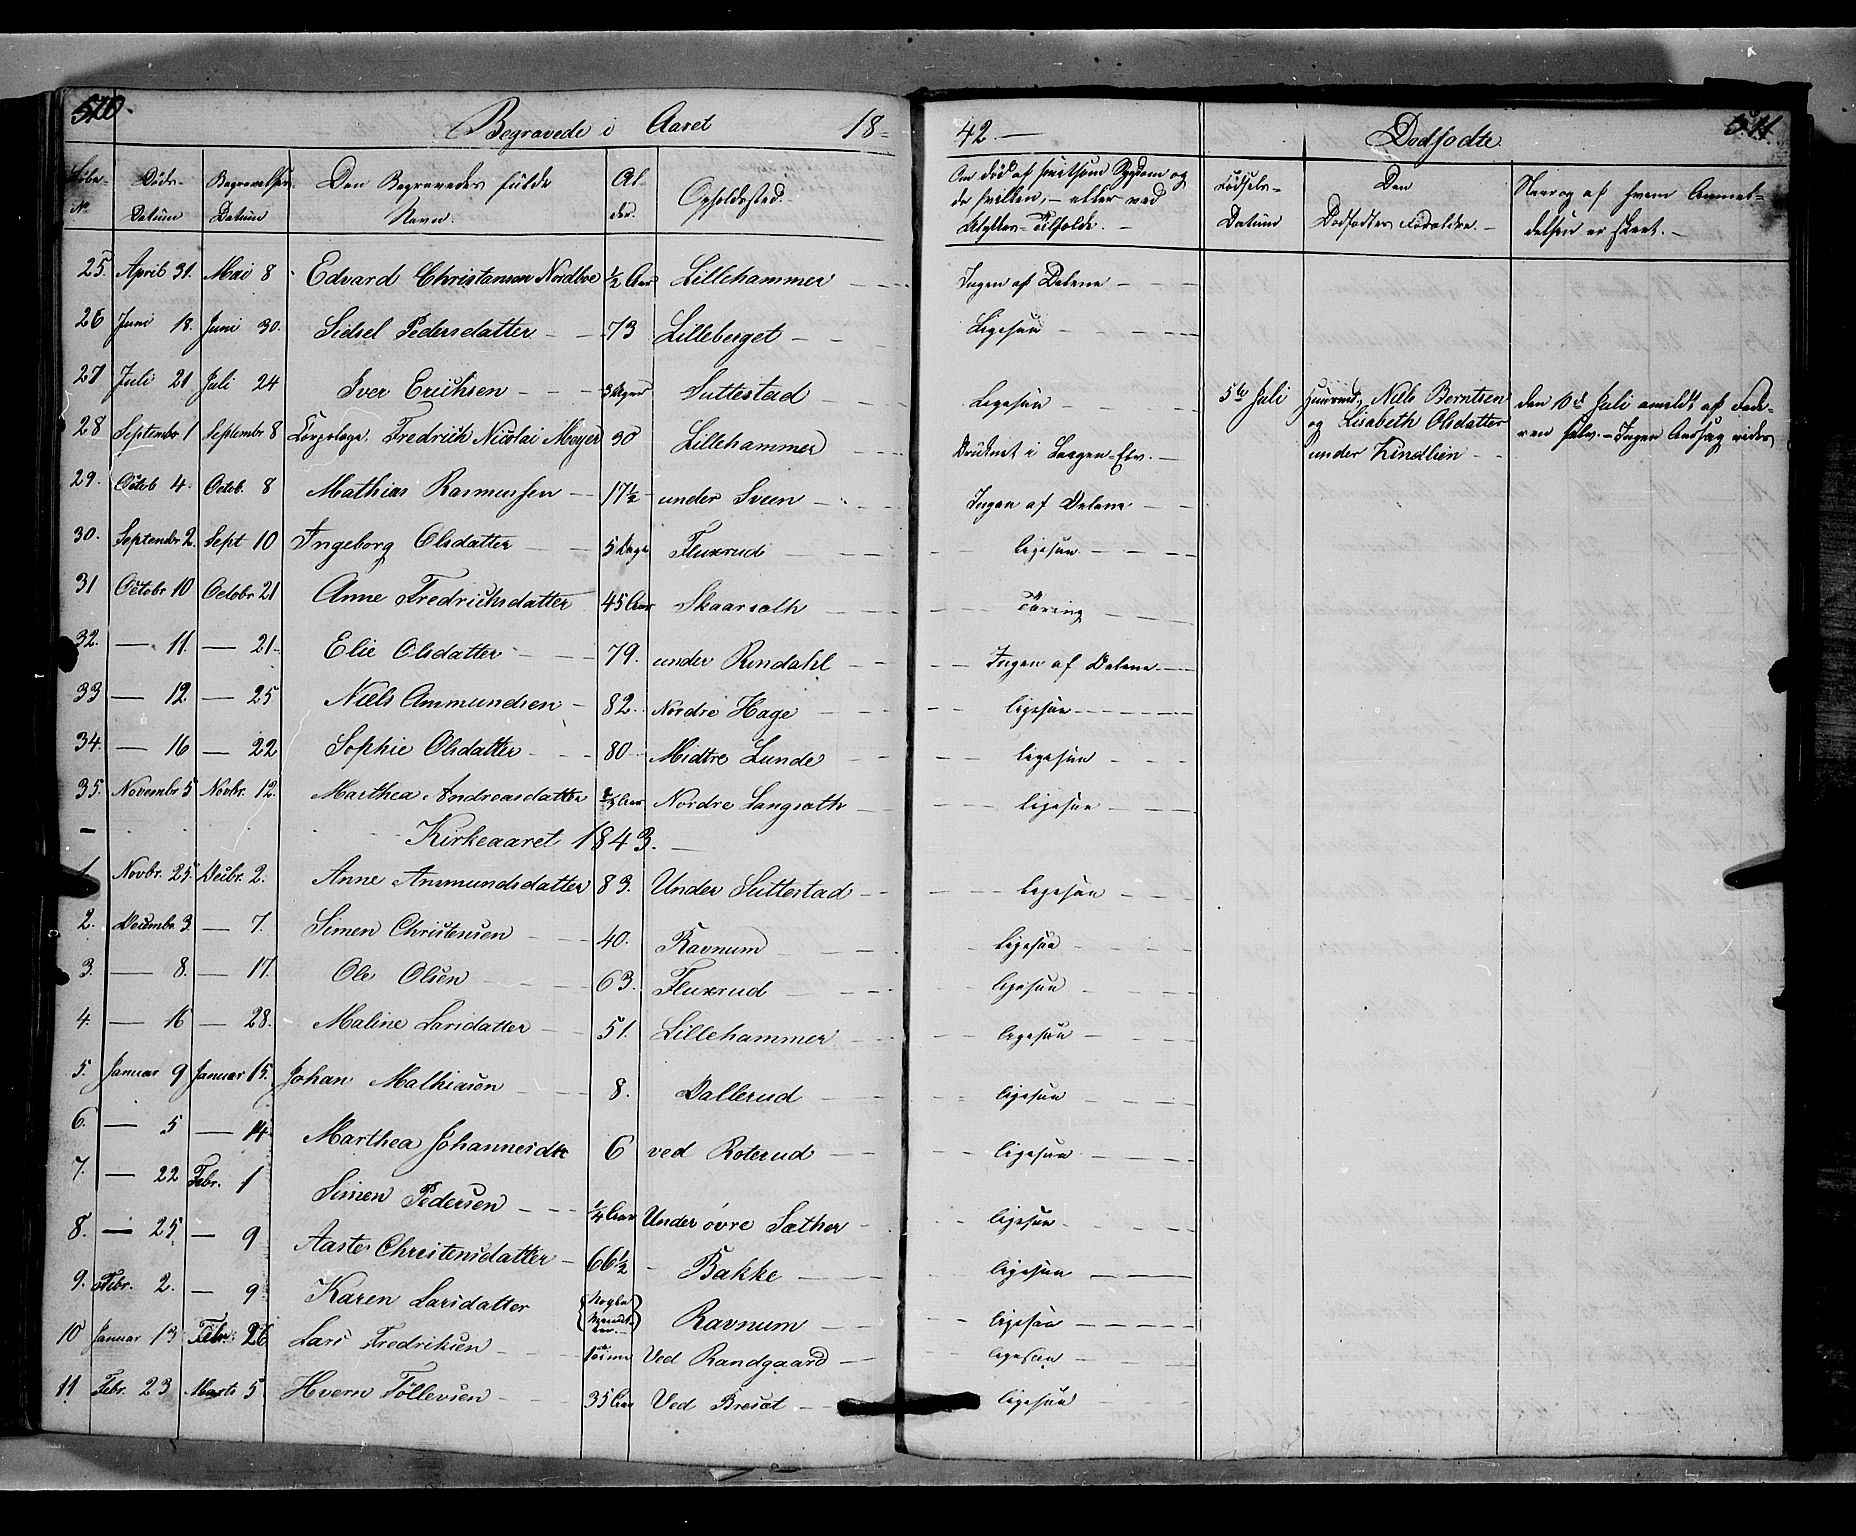 510.
Begravede i Aaret 18-
42.—
Dödfödte
511.
Löbe- No.
Döds- Datum
Begravelses- Datum
Den Begravedes fulde Navn.
Al- der.
Opholdssted.
Om död af smitsom Sygdom og
da hvilken, — eller ved
Ulykkes-Tilfælde. —
Födsels- Datum
Den Dödfödtes Forældre. —
Naar og af hvem Anmel-
delsen er skeet. —
25. April 31. Mai 8 Edvard Christianson Nordboe ½ Aar Lillehammer Ingen af Delene
26 Juni 18. Juni 30. Sidsel Pedersdatter 73 Lilleberget Ligesaa
27 Juli 21 Juli 24 Iver Erichsen 3 Uger Suttestad Ligesaa
5te Juli Huusmd. Niels Berntsen den 10de Juli anmeldt af Fade-
og Lisabeth Olsdatter ren selv. — Ingen Aarsag vides
under Kindlien
28 Septembr 1 Septembr 8 Fredrich Nicolai Moyer 30 Lillehammer Druknet i Laagen-Elv.
29. Octob 4. Octob. 8 Mathias Rasmussen 17½ under Sveen Ingen af Delene
30. Septembr 2. Sept 10 Ingeborg Olsdatter 5 Dage Fluxrud ligesaa
31 Octobr 10 Octobr 21 Anne Fredrichsdatter 45 Aar Skaarsæth Tæring
32. — 11. — 21. Elie Olsdatter 79. under Rindahl Ingen af Delene
33 — 12 — 25 Niels Ammundsen 82. Nordre Hage ligesaa
34. — 16 — 22 Sophie Olsdatter 80 Midtre Lunde ligesaa
35. Novembr 5 Novbr. 12. Marthea Andreasdatter Aar Nordre Langsæth ligesaa
Kirkeaaret 1843.
1. Novbr. 25. Decbr. 2. Anne Amundsdatter 83. Under Suttestad ligesaa
2. Decembr 3. — 7. Simen Christensen 40. Ravnum ligesaa
3. — 8. — 17. Ole Olsen 63. Fluxrud ligesaa
4. — 16 — 28. Maline Larsdatter 51. Lillehammer ligesaa
5. Januar 9 Januar 15. Johan Mathiasen 8. Dallerud ligesaa
6. — 5 — 14 Marthea Johannesdtr 6 ved Roterud ligesaa
7. — 22 Febr. 1 Simen Pedersen ¼ Aar Under övre Sæther ligesaa
8. — 25 — 9 Aaste Christensdatter 66½ Bakke ligesaa
9. Febr. 2. — 9 Karen Larsdatter Nogle Ravnum ligesaa
10 Januar 13 Febr. 26 Lars Fredriksen Ved Randgaard ligesaa
11 Febr. 23 Marts 5 Hvern Töllevsen 35 Aar Ved Bresat ligesaa